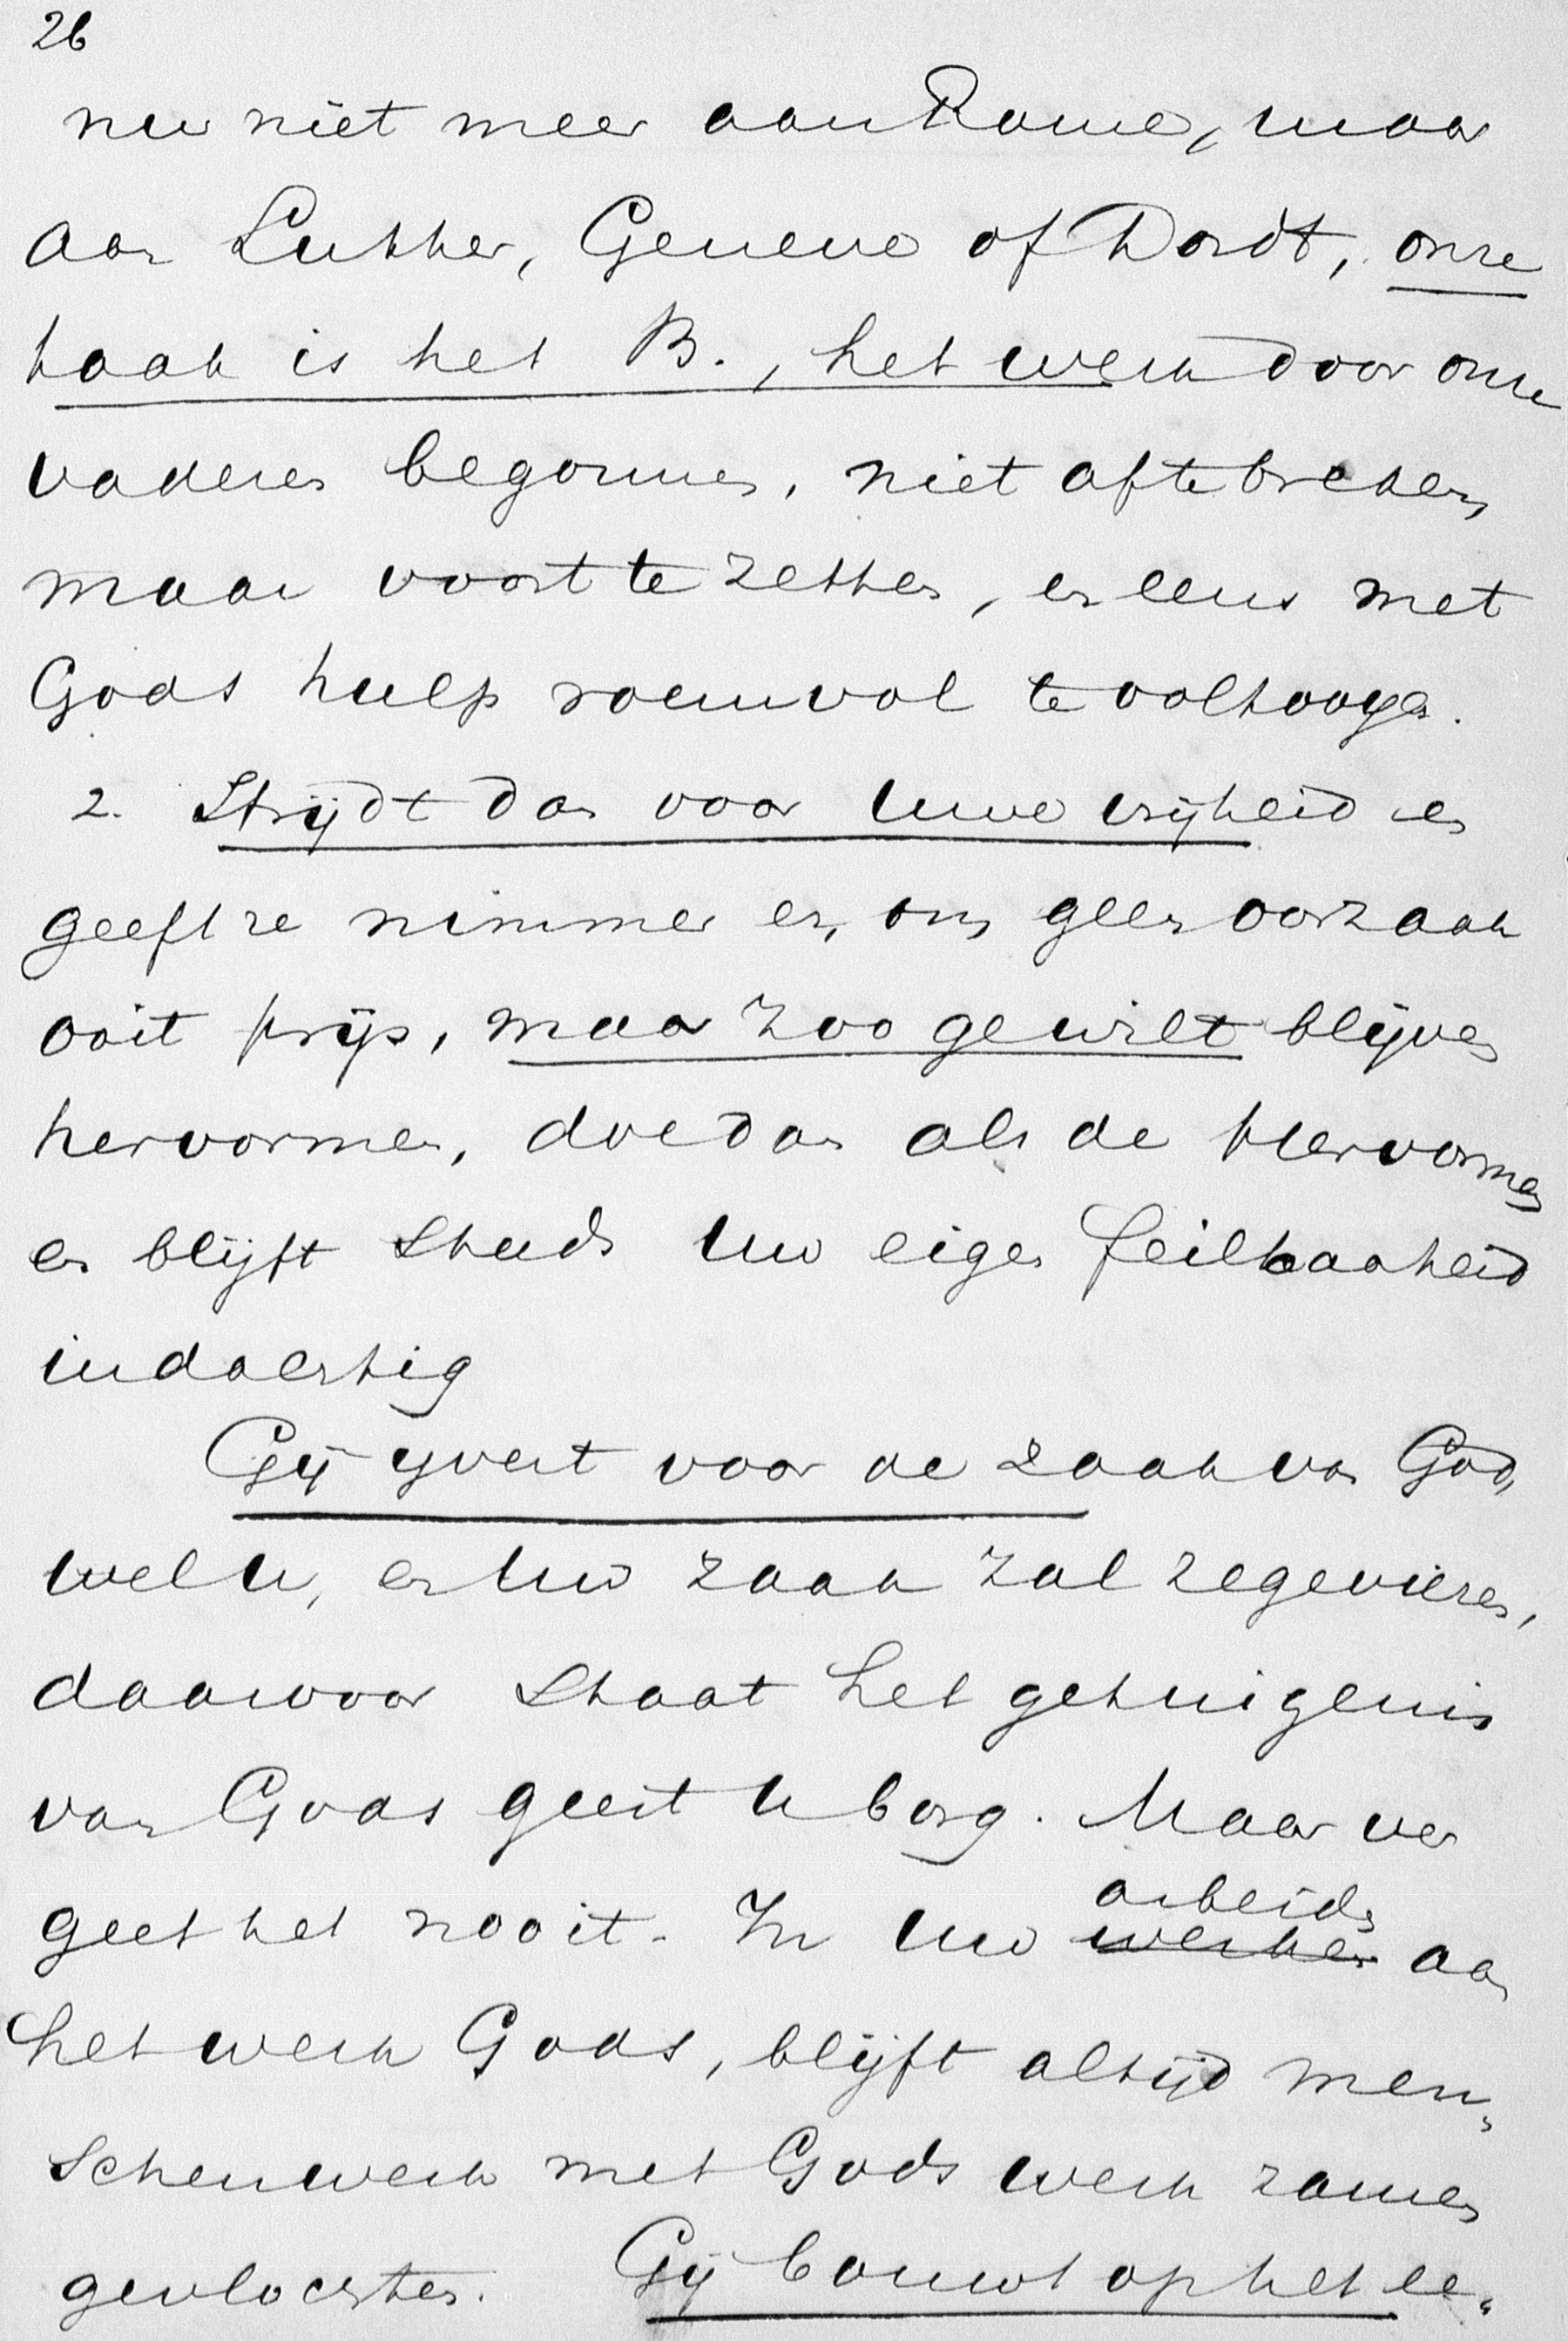 26
nu niet meer aan Rome, maar
aan Luther, Geneve of Dordt, onze
taak is het B., het werk door onze
vaderen begonnen, niet af te breken,
maar voort te zetten, en eens met
Gods hulp roemvol te voltooyen.
2. Strijdt dan voor Uwe vrijheid en
geeft ze nimmer en, om geen oorzaak
ooit prijs, maar zoo ge wilt blijven
hervormen, doe dan als de Hervormers
en blijft steeds Uw eigen feilbaarheid
indachtig
Gij yvert voor de zaak van God,
wel u, en Uw zaak zal zegevieren,
daarvoor staat het getuigenis
van Gods geest U borg. Maar ver
geet het nooit. In Uw werken arbeid aan
het werk Gods, blijft altijd men„
schenwerk met Gods werk zamen
gevlochten. Gij bouwt op het ee„